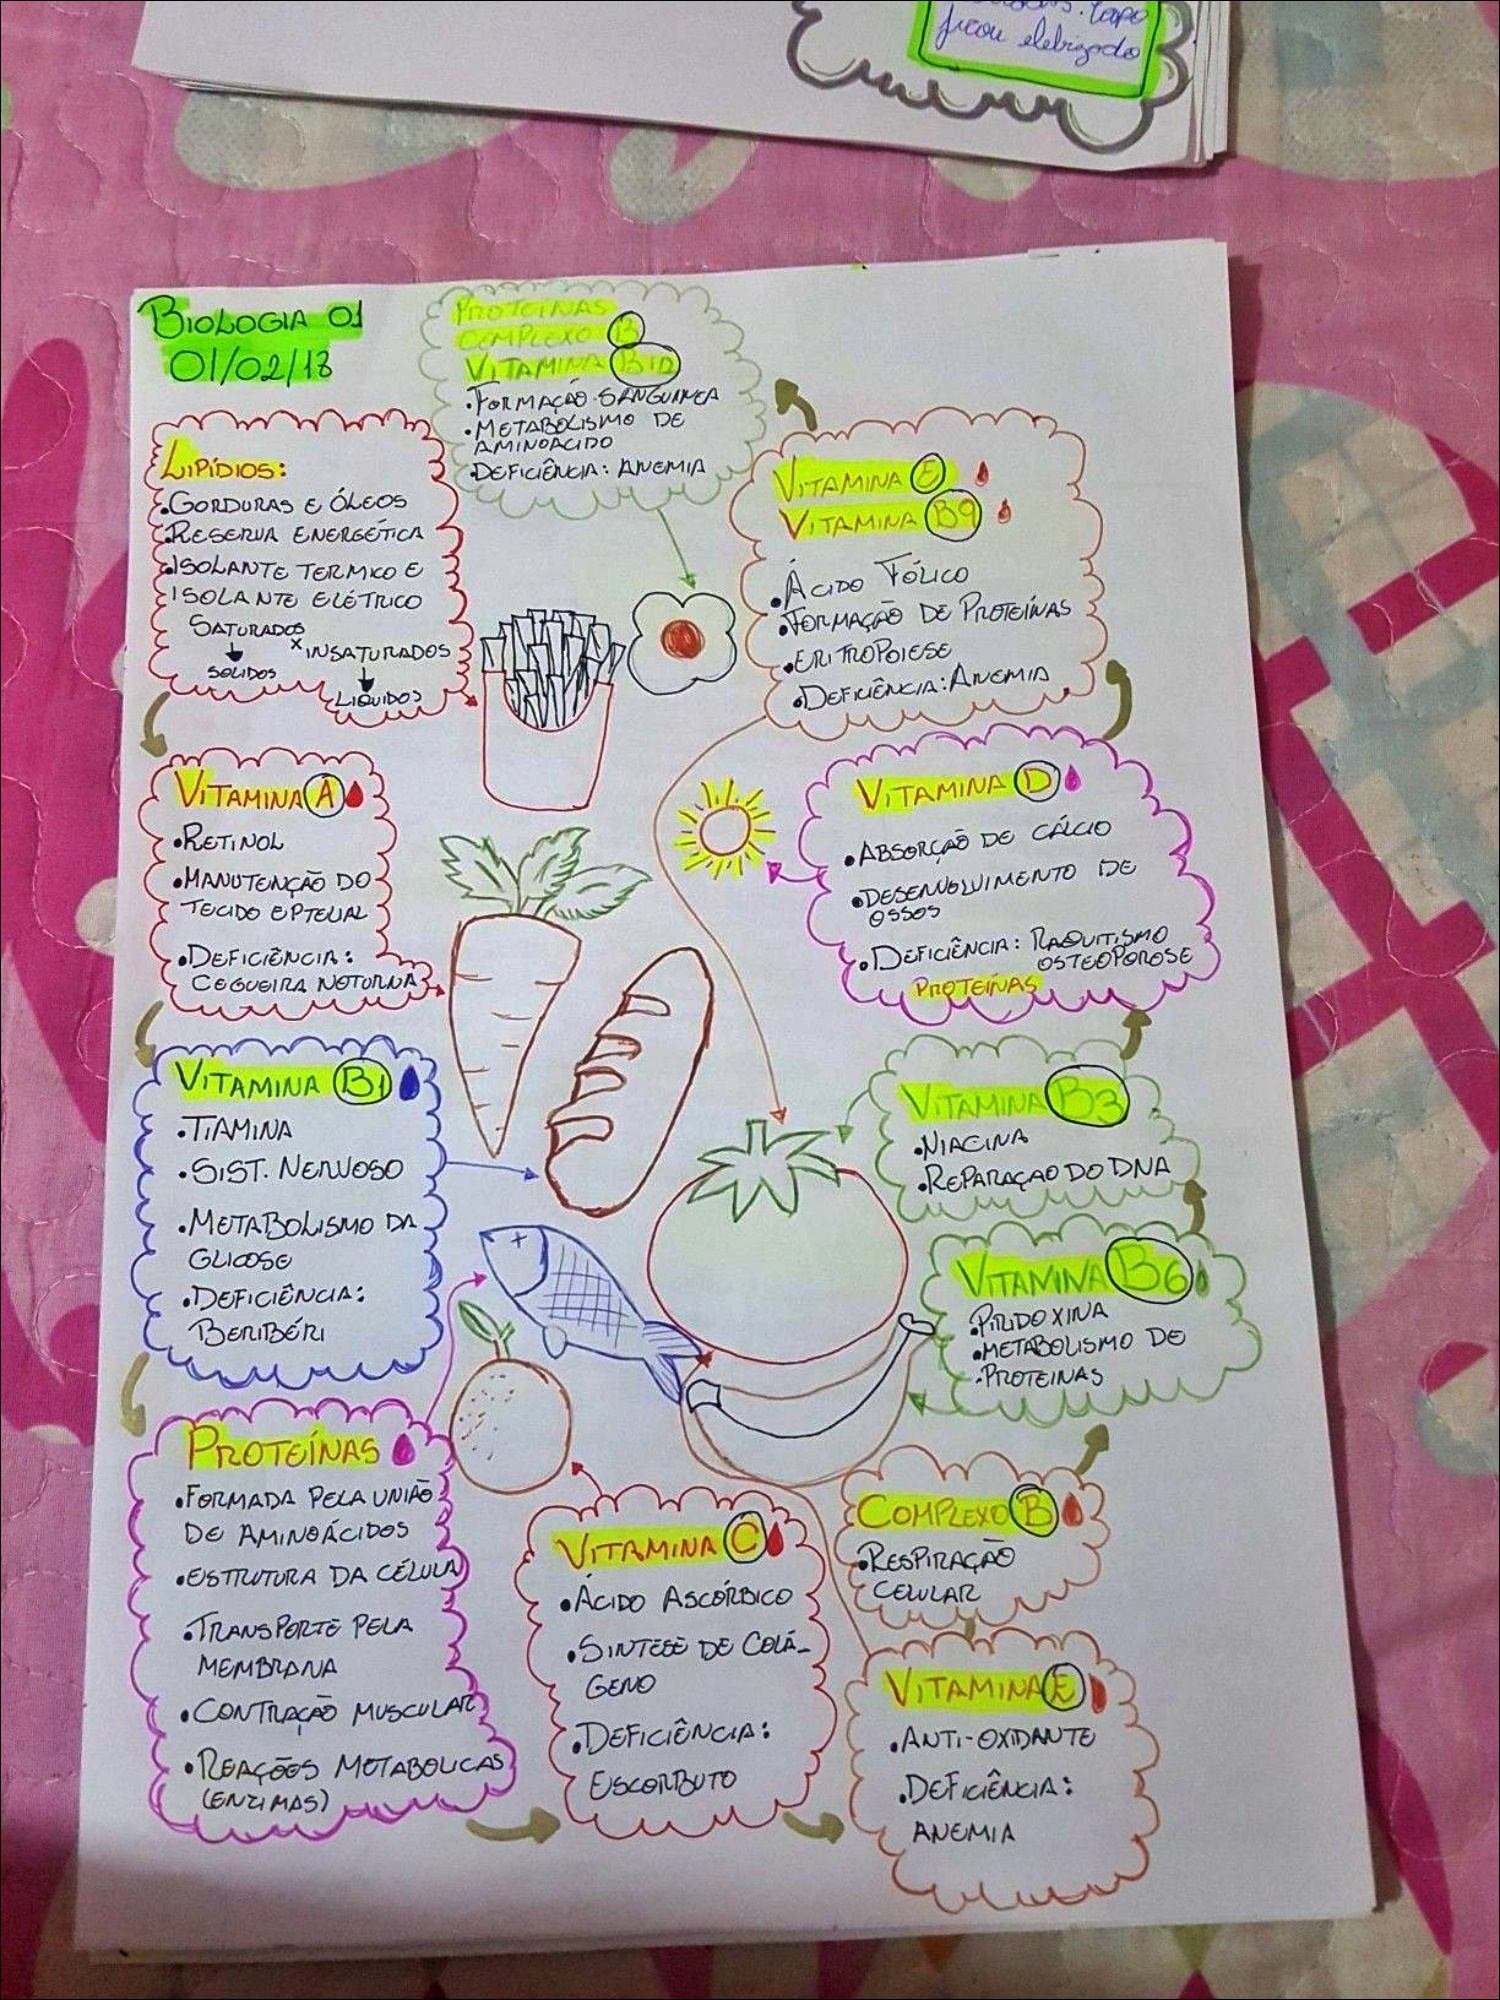 ficou eletrizado
BIOLOGIA 01
01/02/18
PROTEÍNAS
COMPLEXO B
VITAMINA B12
•FORMAÇÃO SANGUINEA
•METABOLISMO DE
AMINOÁCIDO
•DEFICIÊNCIA: ANEMIA
LIPÍDIOS:
•GORDURAS E ÓLEOS
•RESERVA ENERGÉTICA
•ISOLANTE TERMICO E
ISOLANTE ELÉTRICO
SATURADOS
x INSATURADOS
SOLIDOS
LIQUIDOS
VITAMINA A
•RETINOL
•MANUTENÇÃO DO
TECIDO EPTELIAL
•DEFICIÊNCIA:
CEGUEIRA NOTURNA
VITAMINA B1
•TIAMINA
•SIST. NERVOSO
•METABOLISMO DA
GLICOSE
•DEFICIÊNCIA:
BERIBÉRI
PROTEÍNAS
•FORMADA PELA UNIÃO
DE AMINOÁCIDOS
•ESTRUTURA DA CÉLULA
•TRANSPORTE PELA
MEMBRANA
•CONTRAÇÃO MUSCULAR
•REAÇÕES METABOLICAS
(ENZIMAS)
VITAMINA C
•ÁCIDO ASCÓRBICO
•SINTESE DE COLÁ-
GENO
•DEFICIÊNCIA:
ESCORBUTO
VITAMINA E
•ANTI-OXIDANTE
•DEFICIÊNCIA:
ANEMIA
COMPLEXO B
•RESPIRAÇÃO
CELULAR
VITAMINA B6
•PIRIDOXINA
•METABOLISMO DE
•PROTEINAS
VITAMINA B3
•NIACINA
•REPARAÇAO DO DNA
VITAMINA D
•ABSORÇÃO DE CÁLCIO
•DESENVOLVIMENTO DE
OSSOS
•DEFICIÊNCIA: RAQUITISMO
OSTEOPOROSE
PROTEÍNAS
VITAMINA E
VITAMINA B9
•ÁCIDO FÓLICO
•FORMAÇÃO DE PROTEÍNAS
•ERITROPOIESE
•DEFICIÊNCIA: ANEMIA